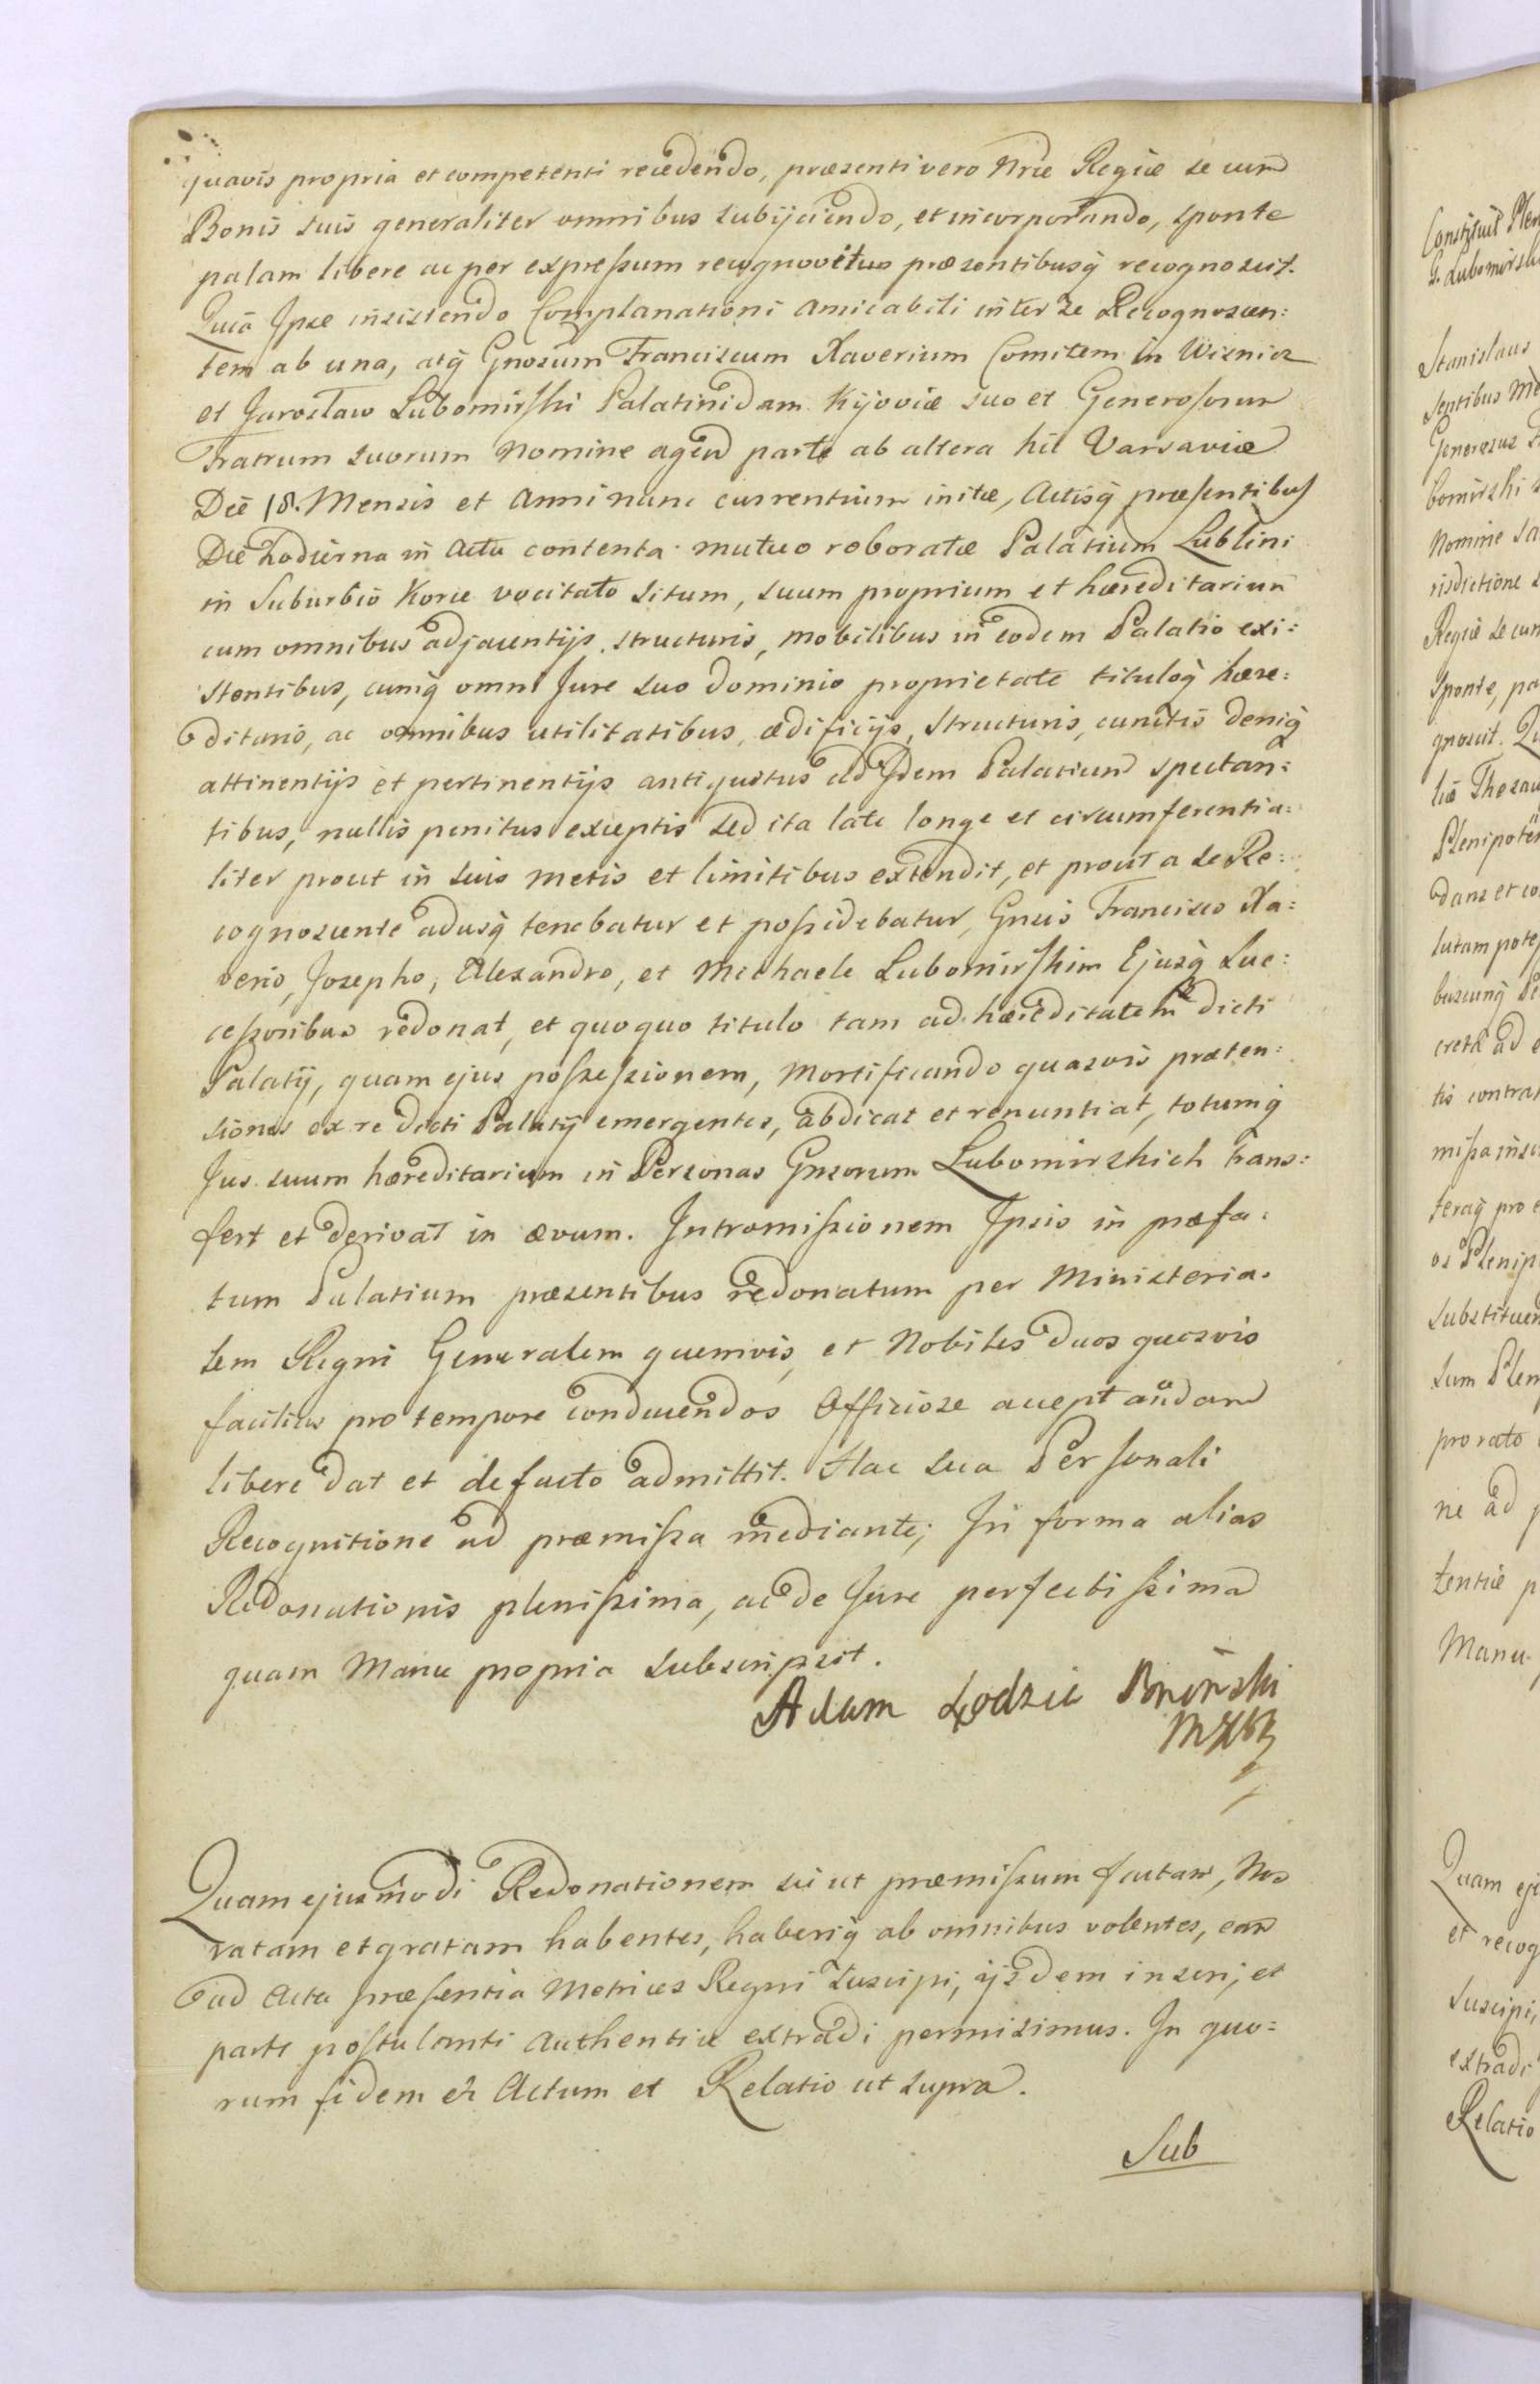 quavis propria et competenti recedendo, præsenti vero Nrae Regiæ se cum
Bonis suis generaliter omnibus subijciendo, et incorporando, sponte
palam libere ac per expressum recognovit præsentibusq̃ recognoscit.
Quia Ipse insistendo Complanationi amicabili inter se Recognoscen:
tem ab una, atq̃ Gnosum Franciscum Xaverium Comitem in Wisnicz
et Jaroslaw Lubomirski Palatinidam Kijoviæ suo et Generosorum
Fratrum suorum Nomine agen parte ab altera hic Varsaviæ
Die 18. Mensis et Anni nunc currentium initæ, Actisq̃ præsentibus
Die hodierna in Actu contenta mutuo roboratæ Palatium Lublini
in Suburbio Korce vocitato situm, suum proprium et hæreditarium
cum omnibus adjacentijs structuris, mobilibus in eodem Palatio exi:
stentibus, cumq̃ omni Jure suo dominio proprietate tituloq̃ hære:
ditario, ac omnibus utilitatibus, ædificijs, structuris, cunctis deniq̃
attinentijs et pertinentijs antiquitus ad Idem Palatium spectan:
tibus, nullis penitus exceptis sed ita late longe et circumferentia:
liter prout in suis metis et limitibus extendit, et prout a se Re:
cognoscente adusq̃ tenebatur et possidebatur, Gnsis Francisco Xa:
verio, Josepho, Alexandro, et Michaele Lubomirskim Ejusq̃ Suc:
cessoribus redonat, et quoquo titulo tam ad hæreditatem dicti
Palatij, quam ejus possessionem, mortificando quasvis præten:
siones ex re dicti Palatij emergentes, abdicat et renuntiat, totumq̃
Jus suum hæreditarium in Personas Gnsorum Lubomirskich trans:
fert et derivat in ævum. Intromissionem Ipsis in præfa:
tum Palatium præsentibus redonatum per Ministeria:
lem Regni Generalem quemvis, et Nobiles duos quosvis
facilius pro tempore conducendos Officiose acceptandam
libere dat et de facto admittit. Hac sua Personali
Recognitione ad præmissa mediante; In forma alias
Redonationis plenissima, ac de Jure perfectissima
quam Manu propria subscripsit.
Adam Łodzia Bninski
Quam ejusmodi Redonationem sic ut præmissum factam, Nos
ratam et gratam habentes, haberiq̃ ab omnibus volentes, eam
ad Acta præsentia Metrices Regni suscipi, ijsdem inseri, et
parti postulanti Authentice extradi permisimus. In quo:
rum fidem etc Actum et Relatio ut supra.
Sub
Constituit Plen
S. Lubomirski
Stanislaus
sentibus
Generosus
bomirski
Nomine
risdictione
Regiæ se cum
sponte, pa
gnoscit.
Thesau
Plenipoten
dans et co
lutam potes
buscunq̃
creta ad
tis contra
missa
teraq̃ pro
os Plenip
substituen
sum Plen
pro rato
ne ad
tentiæ
Manu
Quam ej
et recog
suscipi,
extradi
Relatio